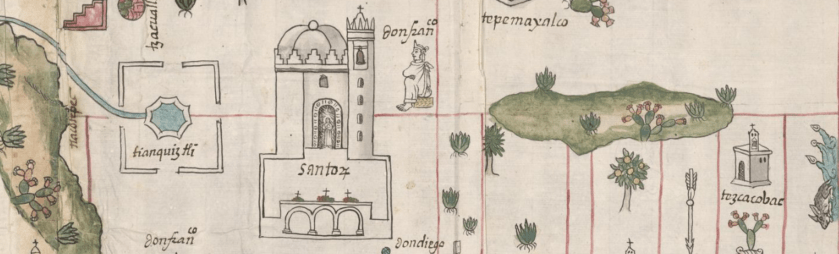 tzaqualli
donfranco
tepemayalco
tianquiztli
santoz
tozcacobac
donfranco
dondiego